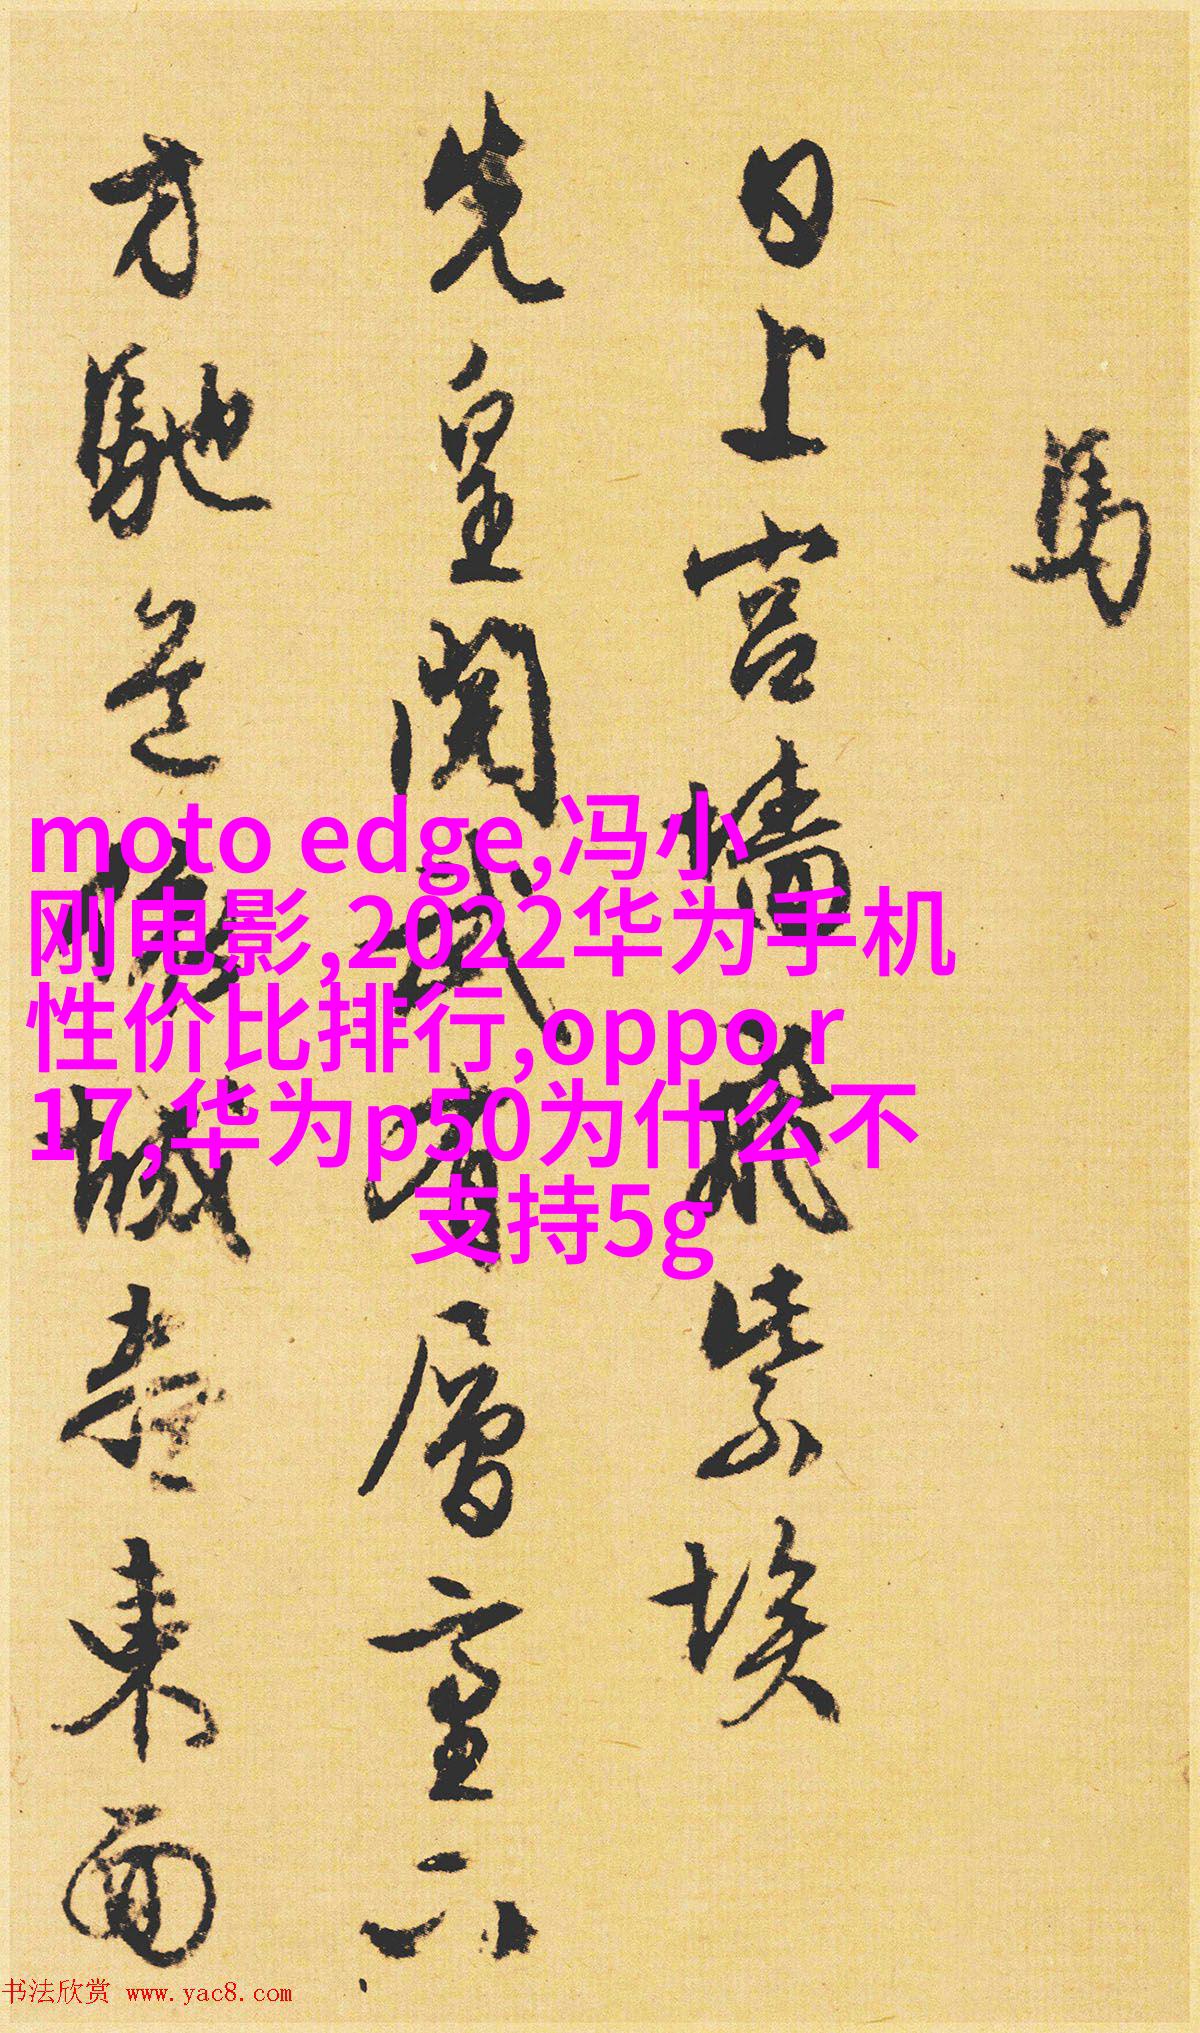 馬
日上宮墻飛紫埃
先皇閱武有層臺下
方馳道城盡東面
moto edge,冯小
刚电影,2022华为手机
性价比排行,oppo r
17,华为p50为什么不
支持5g
书法欣赏 www.yac8.com